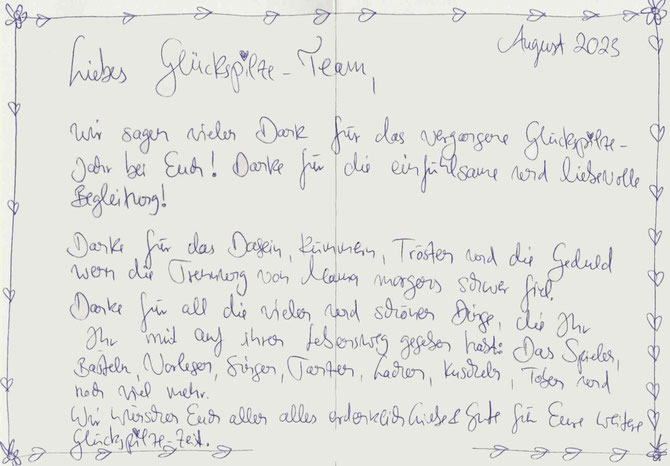 August 2023
Liebes Glückspilze-Team,
Wir sagen vielen Dank für das vergangene Glückspilze-
Jahr bei Euch! Danke für die einfühlsame und liebevolle
Begleitung!
Danke für das Dasein, Kümmern, Trösten und die Geduld
wenn die Trennung von Mama morgens schwer fiel.
Danke für all die vielen und schönen Dinge, die Ihr
Ihr mit auf ihren Lebensweg gegeben habt: Das Spielen,
Basteln, Vorlesen, Singen, Tanzen, Lachen, Kuscheln, Toben und
noch viel mehr.
Wir wünschen Euch allen alles erdenklich Liebe & Gute für Eure weitere
Glückspilze-Zeit.